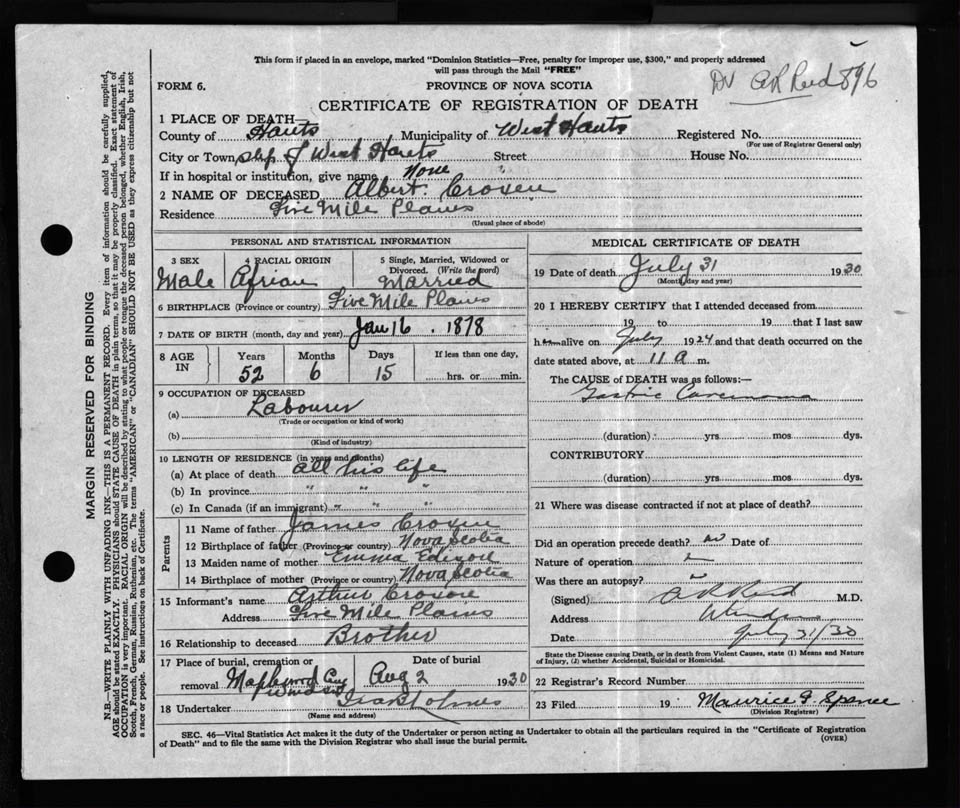 This form if placed in an envelope, marked "Dominion Statistics—Free, penalty for improper use, $300," and properly addressed
will pass through the Mail "FREE"
Dr A R Reid 896
FORM 6.
PROVINCE OF NOVA SCOTIA
CERTIFICATE OF REGISTRATION OF DEATH
1 PLACE OF DEATH—
County of Hants Municipality of West Hants Registered No.
(For use of Registrar General only)
City or Town of West Hants Street House No.
If in hospital or institution, give name None
2 NAME OF DECEASED Albert Croxen
Residence Five Mile Plains
(Usual place of abode)
PERSONAL AND STATISTICAL INFORMATION
3 SEX Male
4 RACIAL ORIGIN African
5 Single, Married, Widowed or Divorced. (Write the word) Married
6 BIRTHPLACE (Province or country) Five Mile Plains
7 DATE OF BIRTH (month, day and year) Jan 16. 1878
8 AGE IN
Years Months Days If less than one day,
52 6 15 hrs. or min.
9 OCCUPATION OF DECEASED
(a) Labourer
(Trade or occupation or kind of work)
(b)
(Kind of industry)
10 LENGTH OF RESIDENCE (in years and months)
(a) At place of death all his life
(b) In province " " "
(c) In Canada (if an immigrant) " " "
Parents
11 Name of father James Croxen
12 Birthplace of father (Province or country) Nova Scotia
13 Maiden name of mother Emma
14 Birthplace of mother (Province or country) Nova Scotia
15 Informant's name Arthur Croxen
Address Five Mile Plains
16 Relationship to deceased Brother
17 Place of burial, cremation or removal Maplewood Cem Windsor
Date of burial Aug 2 1930
18 Undertaker
(Name and address)
MEDICAL CERTIFICATE OF DEATH
19 Date of death July 31 1930
(Month, day and year)
20 I HEREBY CERTIFY that I attended deceased from
19 to 19 that I last saw
him alive on July 1924 and that death occurred on the
date stated above, at 11 a m.
The CAUSE OF DEATH was as follows:—
Gastric Carcinoma
(duration) yrs mos dys.
CONTRIBUTORY
(duration) yrs mos dys.
21 Where was disease contracted if not at place of death?
Did an operation precede death? no Date of
Nature of operation
Was there an autopsy?
(Signed) A R Reid M.D.
Address Windsor
Date July 31/30
State the Disease causing Death, or in death from Violent Causes, state (1) Means and Nature
of Injury, (2) whether Accidental, Suicidal or Homicidal.
22 Registrar's Record Number
23 Filed 19 Maurice G Spence
(Division Registrar)
SEC. 46—Vital Statistics Act makes it the duty of the Undertaker or person acting as Undertaker to obtain all the particulars required in the "Certificate of Registration
of Death" and to file the same with the Division Registrar who shall issue the burial permit.
(OVER)
MARGIN RESERVED FOR BINDING
N.B.—WRITE PLAINLY WITH UNFADING INK—THIS IS A PERMANENT RECORD. Every item of information should be carefully supplied.
AGE should be stated EXACTLY. PHYSICIANS should STATE CAUSE OF DEATH in plain terms, so that it may be properly classified. Exact statement of
OCCUPATION is very important. RACIAL ORIGIN will be described by stating to what people or tongue the deceased person belonged, whether English, Irish,
Scotch, French, German, Russian, Ruthenian, etc. The terms "AMERICAN" or "CANADIAN" SHOULD NOT BE USED as they express citizenship but not
a race or people. See instructions on back of Certificate.